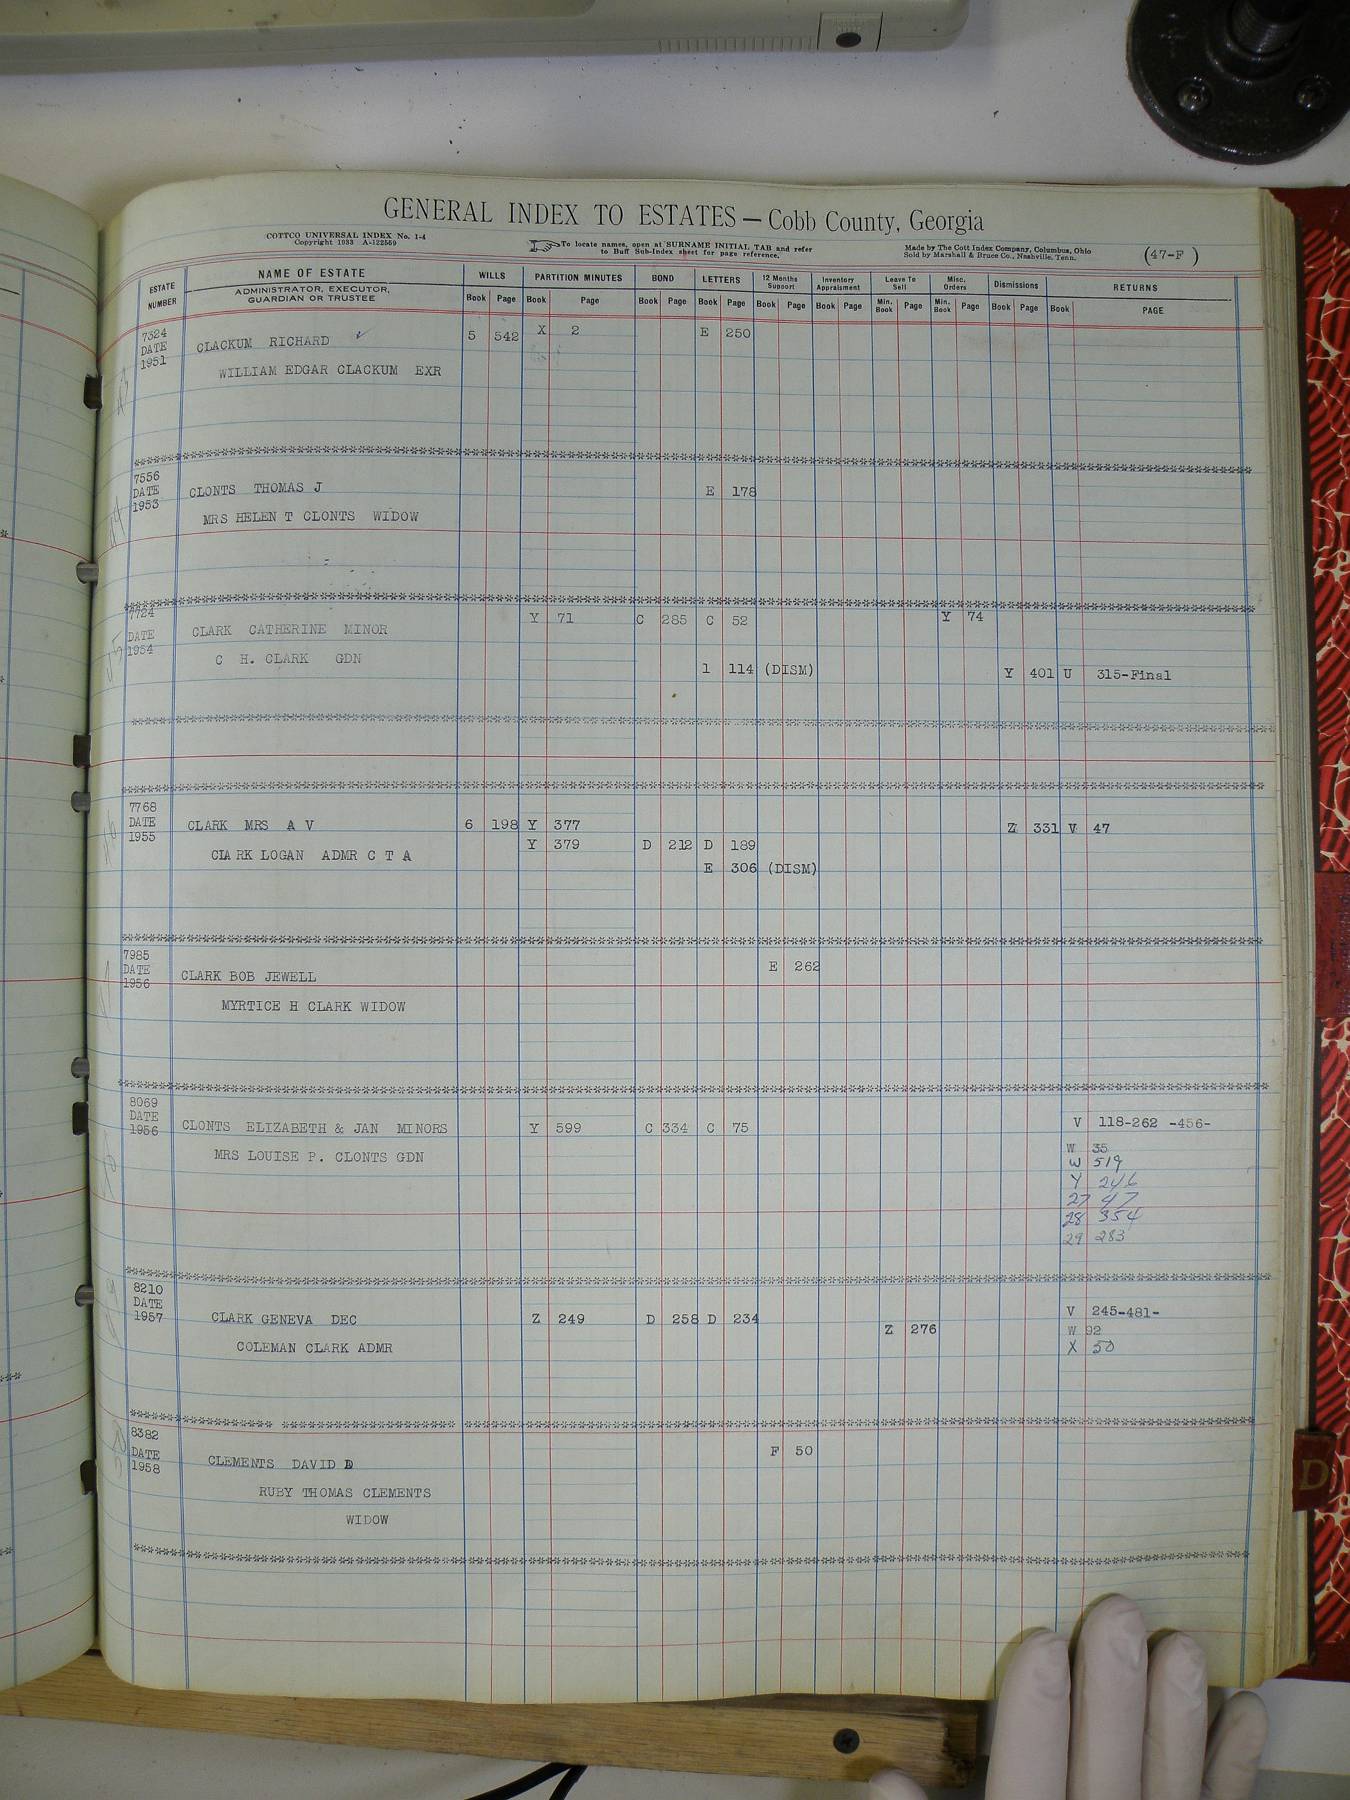 GENERAL INDEX TO ESTATES — Cobb County, Georgia
COTTCO UNIVERSAL INDEX No. 1-4
Copyright 1933 A-122559
To locate names, open at SURNAME INITIAL TAB and refer
to Buff Sub-Index sheet for page reference.
Made by The Cott Index Company, Columbus, Ohio
Sold by Marshall & Bruce Co., Nashville, Tenn.
(47-F )
ESTATE NUMBER
NAME OF ESTATE
ADMINISTRATOR, EXECUTOR,
GUARDIAN OR TRUSTEE
WILLS PARTITION MINUTES BOND LETTERS 12 Months Support Inventory Appraisment Leave To Sell Misc. Orders Dismissions RETURNS
Book Page Book Page Book Page Book Page Book Page Book Page Min. Book Page Min. Book Page Book Page Book PAGE
7324
DATE
1951
CLACKUM RICHARD 5 542 X 2 E 250
WILLIAM EDGAR CLACKUM EXR
7556
DATE
1953
CLONTS THOMAS J E 178
MRS HELEN T CLONTS WIDOW
7724
DATE
1954
CLARK CATHERINE MINOR Y 71 C 285 C 52 Y 74
C H. CLARK GDN 1 114 (DISM) Y 401 U 315-Final
7768
DATE
1955
CLARK MRS A V 6 198 Y 377 Z 331 V 47
Y 379 D 212 D 189
CLARK LOGAN ADMR C T A E 306 (DISM)
7985
DATE
1956
CLARK BOB JEWELL E 262
MYRTICE H CLARK WIDOW
8069
DATE
1956
CLONTS ELIZABETH & JAN MINORS Y 599 C 334 C 75 V 118-262 -456-
MRS LOUISE P. CLONTS GDN W 35
W 519
Y 246
27 47
28 354
29 283
8210
DATE
1957
CLARK GENEVA DEC Z 249 D 258 D 234 V 245-481-
Z 276 W 92
COLEMAN CLARK ADMR X 50
8382
DATE
1958
CLEMENTS DAVID D F 50
RUBY THOMAS CLEMENTS
WIDOW
D